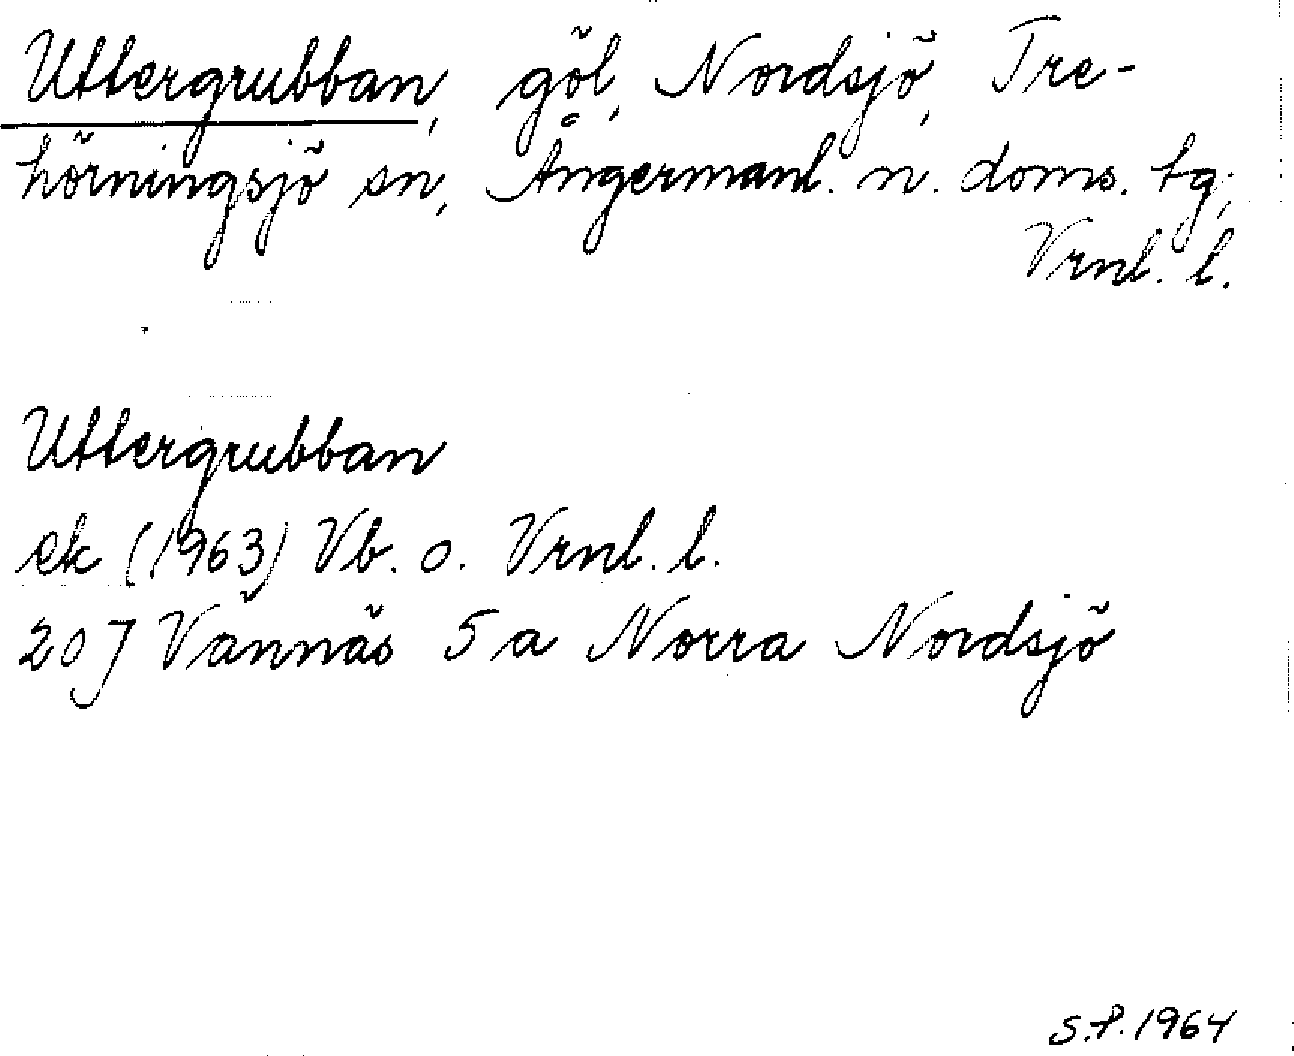 Uttergrubban, göl, Nordsjö, Tre-
hörningsjö sn, Ångermanl. n. doms. tg,
Vrnl. l.
Uttergrubban
ek (1963) Vb. o. Vrnl. l.
20J Vännäs 5a Norra Nordsjö
S.P. 1964